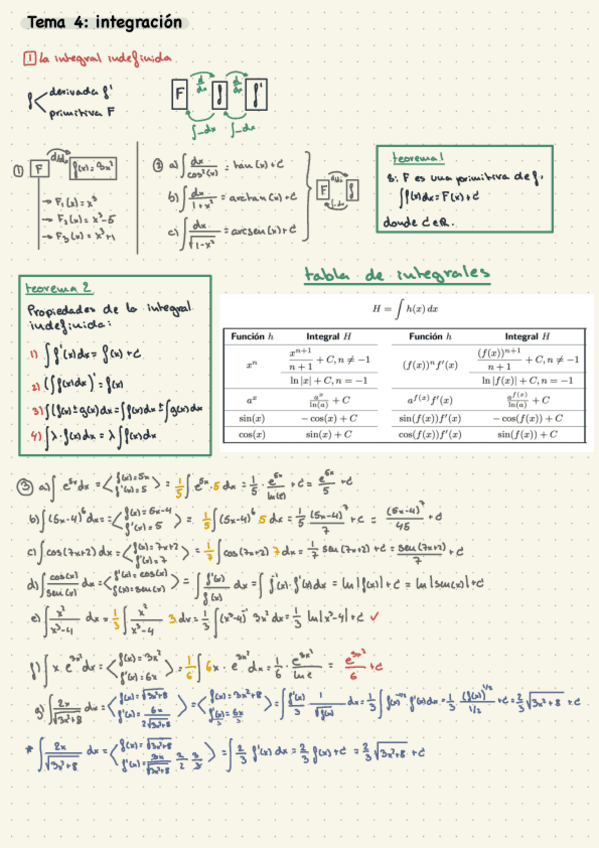 Tema 4: integración
1 La integral indefinida
f < derivada f'
primitiva F
F d/dx f d/dx f'
∫_dx ∫_dx
① F d/dx f(x)=3x²
→ F₁(x)=x³
→ F₂(x)=x³-5
→ F₃(x)=x³+1
② a) ∫ dx/cos²(x) = tan(x)+C
b) ∫ dx/(1+x²) = arctan(x)+C
c) ∫ dx/√(1-x²) = arcsen(x)+C
F f
teorema 1
Si F es una primitiva de f,
∫f(x)dx = F(x)+C
donde C∈R.
teorema 2
Propiedades de la integral
indefinida:
1) ∫f'(x)dx = f(x)+C
2) (∫f(x)dx)' = f(x)
3) ∫(f(x)±g(x))dx = ∫f(x)dx ± ∫g(x)dx
4) ∫λ·f(x)dx = λ∫f(x)dx
tabla de integrales
H = ∫ h(x) dx
Función h Integral H Función h Integral H
xⁿ xⁿ⁺¹/(n+1) + C, n ≠ −1 (f(x))ⁿf'(x) (f(x))ⁿ⁺¹/(n+1) + C, n ≠ −1
ln|x| + C, n = −1 ln|f(x)| + C, n = −1
aˣ aˣ/ln(a) + C a^f(x) f'(x) a^f(x)/ln(a) + C
sin(x) − cos(x) + C sin(f(x))f'(x) − cos(f(x)) + C
cos(x) sin(x) + C cos(f(x))f'(x) sin(f(x)) + C
③ a) ∫e^5x dx = <f(x)=5x f'(x)=5> = 1/5 ∫e^5x·5 dx = 1/5 · e^5x/ln(e) + C = e^5x/5 + C
b) ∫(5x-4)⁶dx = <f(x)=5x-4 f'(x)=5> = 1/5 ∫(5x-4)⁶ 5 dx = 1/5 (5x-4)⁷/7 + C = (5x-4)⁷/45 + C
c) ∫cos(7x+2)dx = <f(x)=7x+2 f'(x)=7> = 1/7 ∫cos(7x+2) 7 dx = 1/7 sen(7x+2)+C = sen(7x+2)/7 + C
d) ∫ cos(x)/sen(x) dx = <f'(x)=cos(x) f(x)=sen(x)> = ∫ f'(x)/f(x) dx = ∫f⁻¹(x)·f'(x)dx = ln|f(x)|+C = ln|sen(x)|+C
e) ∫ x²/(x³-4) dx = 1/3 ∫ x²/(x³-4) 3 dx = 1/3 ∫(x³-4)⁻¹ 3x² dx = 1/3 ln|x³-4|+C ✓
f) ∫x e^3x² dx = <f(x)=3x² f'(x)=6x> = 1/6 ∫6x·e^3x² dx = 1/6 · e^3x²/ln e = e^3x²/6 + C
g) ∫ 2x/√(3x²+8) dx = <f(x)=√(3x²+8) f'(x)=6x/2√(3x²+8)> = <f(x)=3x²+8 f'(x)/3=6x/3> = ∫ f'(x)/3 · 1/√f(x) dx = 1/3 ∫f(x)^-1/2 f'(x)dx = 1/3 · (f(x))^1/2/(1/2) + C = 2/3 √(3x²+8) + C
* ∫ 2x/√(3x²+8) dx = <f(x)=√(3x²+8) f'(x)=3x/√(3x²+8) 2/2 3/3> = ∫ 2/3 f'(x)dx = 2/3 f(x)+C = 2/3 √(3x²+8) + C